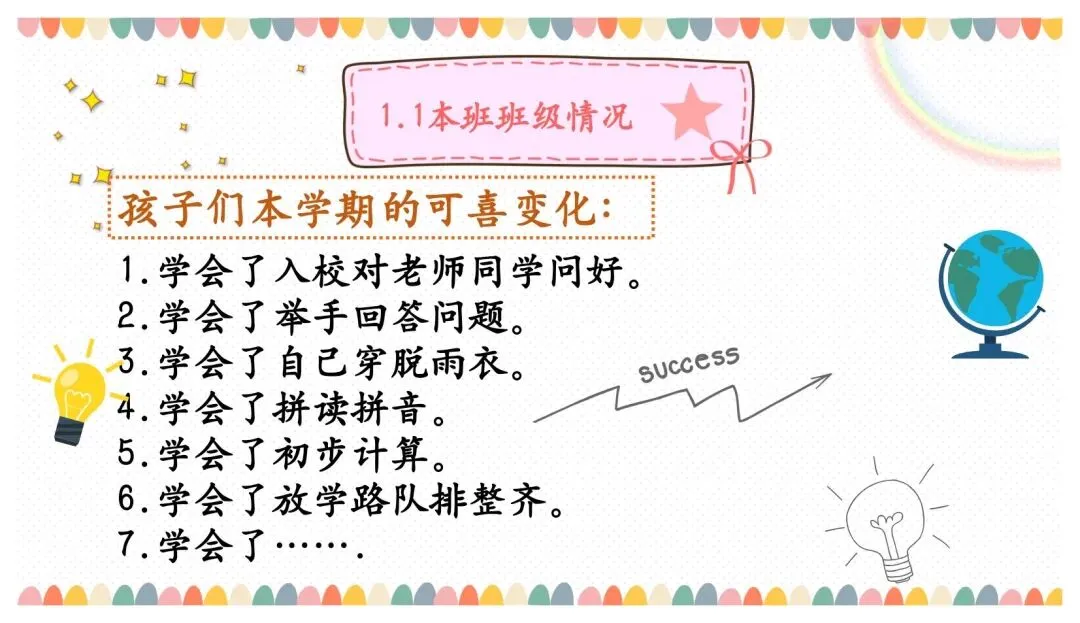 1.1本班班级情况
孩子们本学期的可喜变化：
1.学会了入校对老师同学问好。
2.学会了举手回答问题。
3.学会了自己穿脱雨衣。
success
4.学会了拼读拼音。
5.学会了初步计算。
6.学会了放学路队排整齐。
7.学会了…….